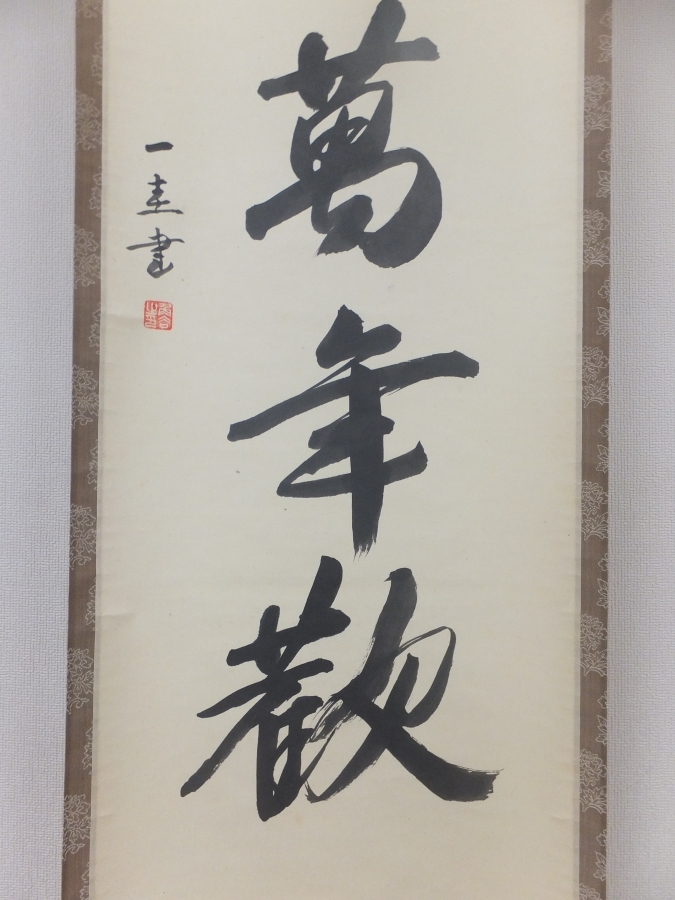 萬年歡
一圭書